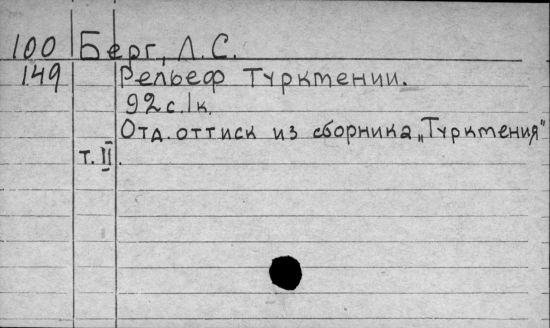 100 Берг, Л.С.
149 Рельеф Туркмении.
92 с. 1 к.
Отд. оттиск из сборника „Туркмения"
т. II.